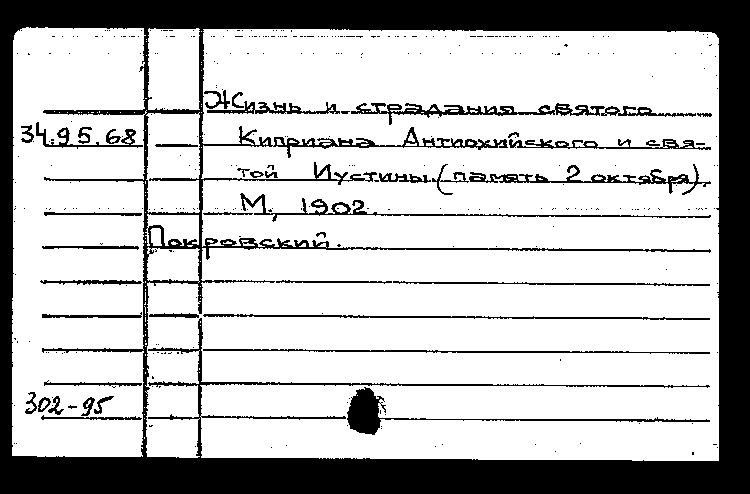 Жизнь и страдания святого
34.95.68 Киприана Антиохийского и свя-
той Иустины (память 2 октября).
М., 1902.
Покровский.
302-95